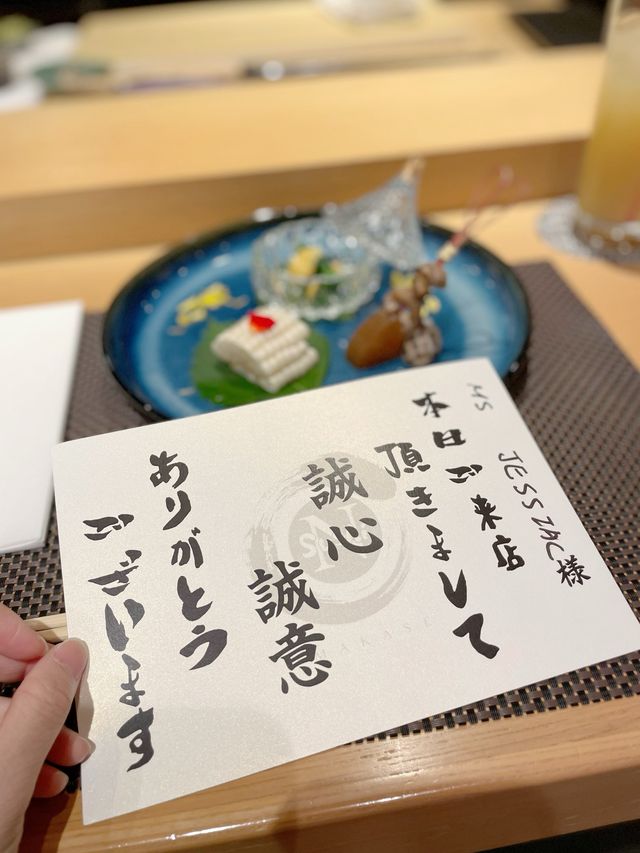 MS JESS ZAC様
本日ご来店
頂きまして
誠心
誠意
ありがとう
ございます